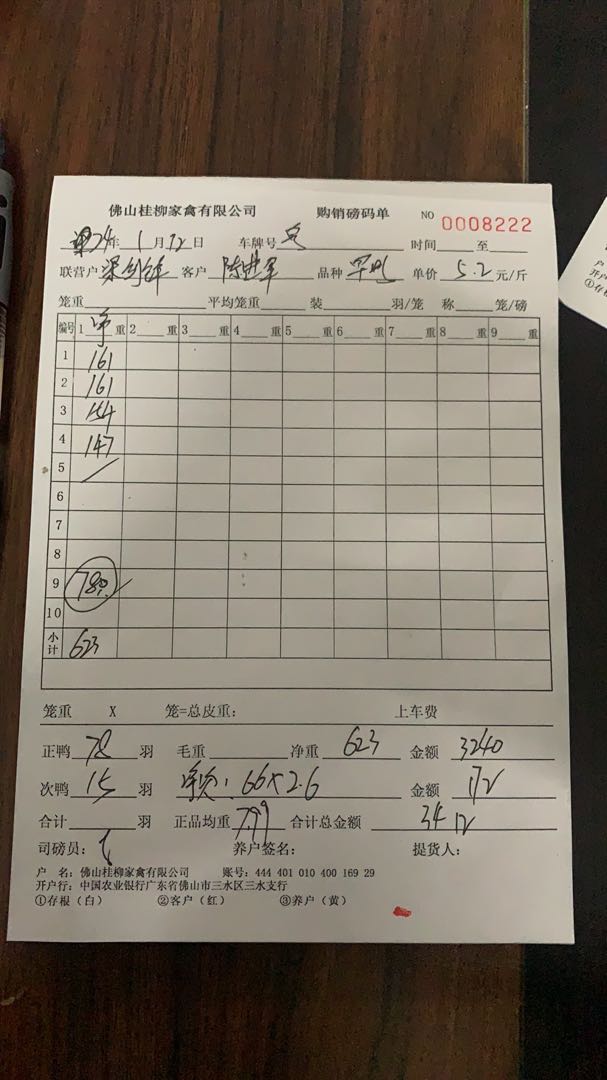 佛山桂柳家禽有限公司 购销磅码单 NO 0008222
24年 1月12日 车牌号 时间 至
联营户 梁剑锋 客户 陈进军 品种 单价 5.2 元/斤
笼重 平均笼重 装 羽/笼 称 笼/磅
编号 1 净 重 2 重 3 重 4 重 5 重 6 重 7 重 8 重 9 重
1 161
2 161
3 154
4 147
5
6
7
8
9 78
10
小计 623
笼重 X 笼=总皮重: 上车费
正鸭 78 羽 毛重 净重 623 金额 3240
次鸭 15 羽 净重: 66×2.6 金额 172
合计 羽 正品均重 7.99 合计总金额 3412
司磅员: 养户签名: 提货人:
户 名: 佛山桂柳家禽有限公司 账号: 444 401 010 400 169 29
开户行: 中国农业银行广东省佛山市三水区三水支行
①存根(白) ②客户(红) ③养户(黄)
户
开户
①存